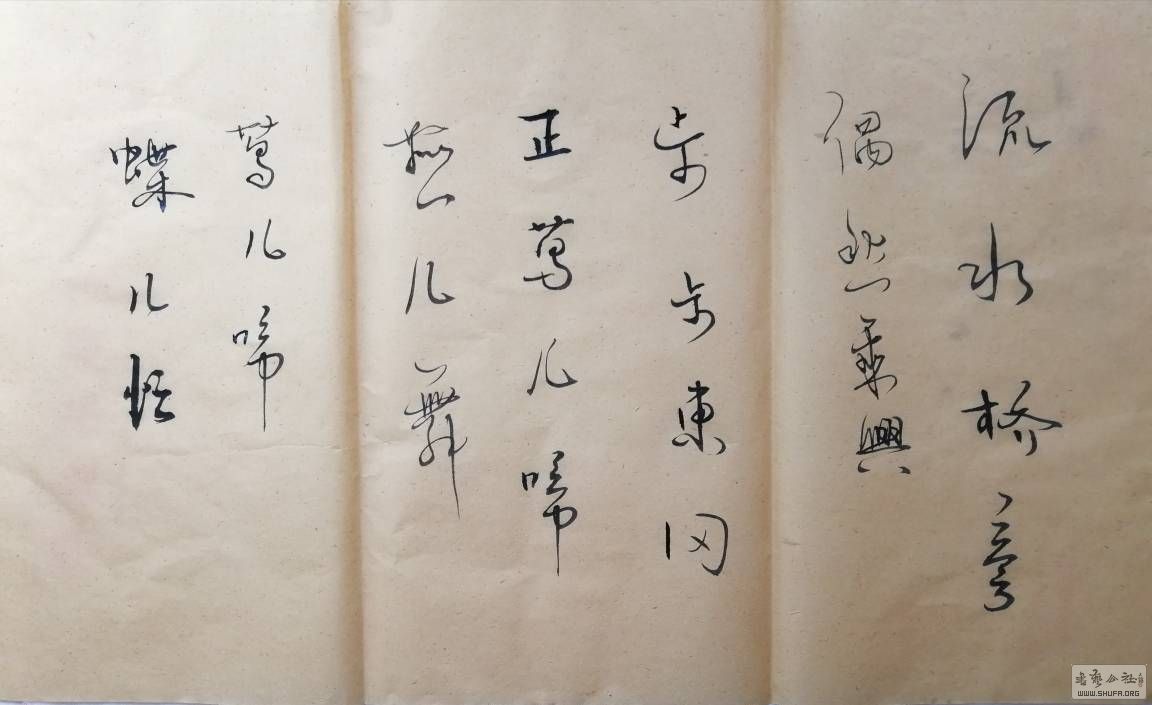 流水桥旁
偶然乘興
步步東冈
正莺儿啼
燕儿舞
莺儿啼
蝶儿忙
書藝公社
WWW.SHUFA.ORG